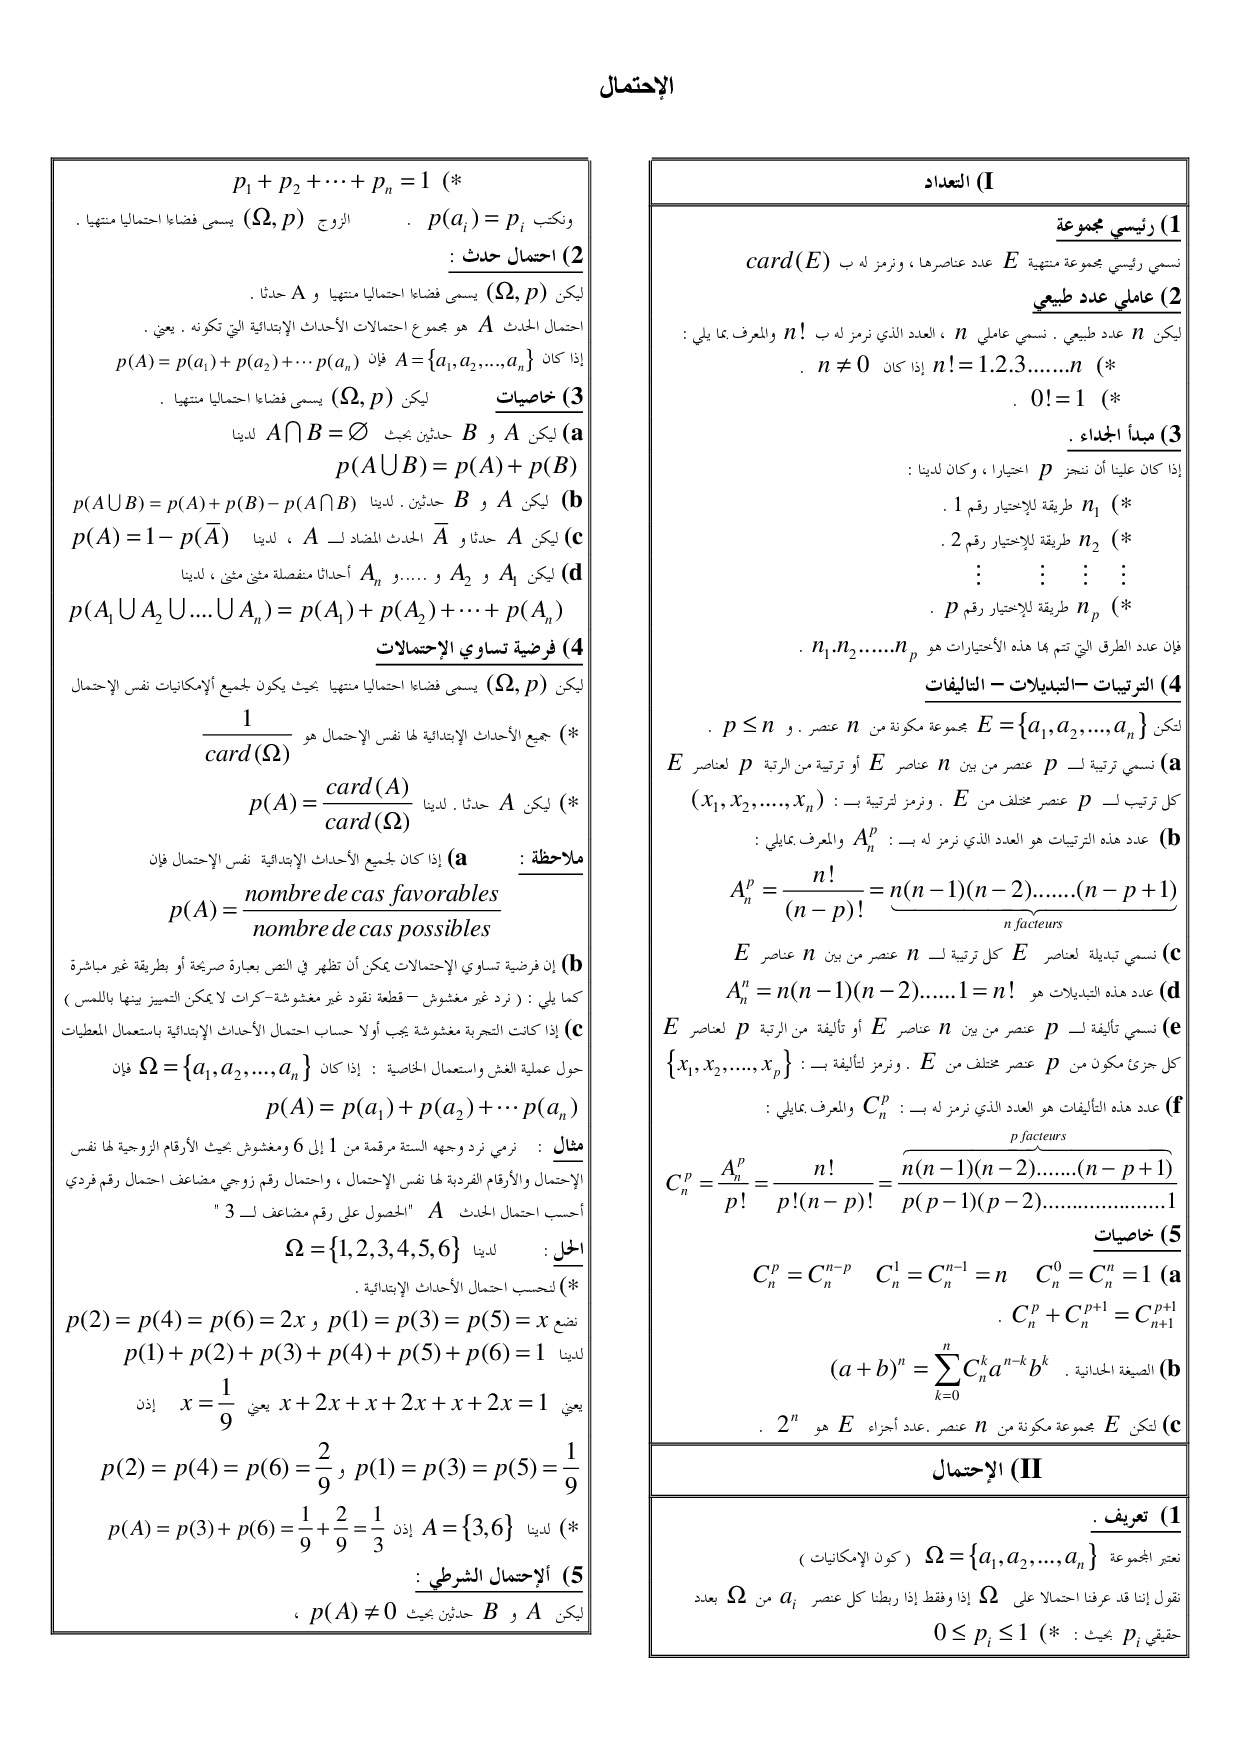 الإحتمال
I) التعداد
1) رئيسي مجموعة
نسمي رئيسي مجموعة منتهية E عدد عناصرها ، ونرمز له ب card(E)
2) عاملي عدد طبيعي
ليكن n عدد طبيعي . نسمي عاملي n ، العدد الذي نرمز له ب n! والمعرف بما يلي :
*) n! = 1.2.3.......n إذا كان n ≠ 0 .
*) 0! = 1 .
3) مبدأ الجداء .
إذا كان علينا أن ننجز p اختيارا ، وكان لدينا :
*) n₁ طريقة للإختيار رقم 1 .
*) n₂ طريقة للإختيار رقم 2 .
⋮ ⋮ ⋮ ⋮
*) n_p طريقة للإختيار رقم p .
فإن عدد الطرق التي تتم بها هذه الأختيارات هو n₁.n₂......n_p .
4) الترتيبات –التبديلات – التاليفات
لتكن E = {a₁, a₂, ..., aₙ} مجموعة مكونة من n عنصر . و p ≤ n .
a) نسمي ترتيبة لــ p عنصر من بين n عناصر E أو ترتيبة من الرتبة p لعناصر E
كل ترتيب لــ p عنصر مختلف من E . ونرمز لترتيبة بــ : (x₁, x₂, ...., xₙ)
b) عدد هذه الترتيبات هو العدد الذي نرمز له بــ : A_n^p والمعرف بمايلي :
A_n^p = n! / (n − p)! = n(n − 1)(n − 2).......(n − p + 1)
n facteurs
c) نسمي تبديلة لعناصر E كل ترتيبة لــ n عنصر من بين n عناصر E
d) عدد هذه التبديلات هو A_n^n = n(n − 1)(n − 2)......1 = n!
e) نسمي تأليفة لــ p عنصر من بين n عناصر E أو تأليفة من الرتبة p لعناصر E
كل جزئ مكون من p عنصر مختلف من E . ونرمز لتأليفة بــ : {x₁, x₂, ...., x_p}
f) عدد هذه التأليفات هو العدد الذي نرمز له بــ : C_n^p والمعرف بمايلي :
p facteurs
C_n^p = A_n^p / p! = n! / p!(n − p)! = n(n − 1)(n − 2).......(n − p + 1) / p(p − 1)(p − 2).....................1
5) خاصيات
a) C_n^0 = C_n^n = 1 C_n^1 = C_n^{n−1} = n C_n^p = C_n^{n−p}
C_n^p + C_n^{p+1} = C_{n+1}^{p+1} .
b) الصيغة الحدانية . (a + b)^n = ∑_{k=0}^{n} C_n^k a^{n−k} b^k
c) لتكن E مجموعة مكونة من n عنصر .عدد أجزاء E هو 2^n .
II) الإحتمال
1) تعريف .
نعتبر المجموعة Ω = {a₁, a₂, ..., aₙ} ( كون الإمكانيات )
نقول إننا قد عرفنا احتمالا على Ω إذا وفقط إذا ربطنا كل عنصر a_i من Ω بعدد
حقيقي p_i بحيث : *) 0 ≤ p_i ≤ 1
*) p₁ + p₂ + ⋯ + pₙ = 1
ونكتب p(a_i) = p_i . الزوج (Ω, p) يسمى فضاءا احتماليا منتهيا .
2) احتمال حدث :
ليكن (Ω, p) يسمى فضاءا احتماليا منتهيا و A حدثا .
احتمال الحدث A هو مجموع احتمالات الأحداث الإبتدائية التي تكونه . يعني .
إذا كان A = {a₁, a₂, ..., aₙ} فإن p(A) = p(a₁) + p(a₂) + ⋯ p(aₙ)
3) خاصيات ليكن (Ω, p) يسمى فضاءا احتماليا منتهيا .
a) ليكن A و B حدثين بحيث A ∩ B = ∅ لدينا
p(A ∪ B) = p(A) + p(B)
b) ليكن A و B حدثين . لدينا p(A ∪ B) = p(A) + p(B) − p(A ∩ B)
c) ليكن A حدثا و A̅ الحدث المضاد لــ A ، لدينا p(A) = 1 − p(A̅)
d) ليكن A₁ و A₂ و .....و Aₙ أحداثا منفصلة مثنى مثنى ، لدينا
p(A₁ ∪ A₂ ∪ .... ∪ Aₙ) = p(A₁) + p(A₂) + ⋯ + p(Aₙ)
4) فرضية تساوي الإحتمالات
ليكن (Ω, p) يسمى فضاءا احتماليا منتهيا بحيث يكون لجميع ألإمكانيات نفس الإحتمال
*) جميع الأحداث الإبتدائية لها نفس الإحتمال هو 1 / card(Ω)
*) ليكن A حدثا . لدينا p(A) = card(A) / card(Ω)
ملاحظة : a) إذا كان لجميع الأحداث الإبتدائية نفس الإحتمال فإن
p(A) = nombre de cas favorables / nombre de cas possibles
b) إن فرضية تساوي الإحتمالات يمكن أن تظهر في النص بعبارة صريحة أو بطريقة غير مباشرة
كما يلي : ( نرد غير مغشوش – قطعة نقود غير مغشوشة-كرات لا يمكن التمييز بينها باللمس )
c) إذا كانت التجربة مغشوشة يجب أولا حساب احتمال الأحداث الإبتدائية باستعمال المعطيات
حول عملية الغش واستعمال الخاصية : إذا كان Ω = {a₁, a₂, ..., aₙ} فإن
p(A) = p(a₁) + p(a₂) + ⋯ p(aₙ)
مثال : نرمي نرد وجهه الستة مرقمة من 1 إلى 6 ومغشوش بحيث الأرقام الزوجية لها نفس
الإحتمال والأرقام الفردية لها نفس الإحتمال ، واحتمال رقم زوجي مضاعف احتمال رقم فردي
أحسب احتمال الحدث A "الحصول على رقم مضاعف لــ 3 "
الحل : لدينا Ω = {1, 2, 3, 4, 5, 6}
*) لنحسب احتمال الأحداث الإبتدائية .
نضع p(1) = p(3) = p(5) = x و p(2) = p(4) = p(6) = 2x
لدينا p(1) + p(2) + p(3) + p(4) + p(5) + p(6) = 1
يعني x + 2x + x + 2x + x + 2x = 1 يعني x = 1/9 إذن
p(1) = p(3) = p(5) = 1/9 و p(2) = p(4) = p(6) = 2/9
*) لدينا A = {3, 6} إذن p(A) = p(3) + p(6) = 1/9 + 2/9 = 1/3
5) ألإحتمال الشرطي :
ليكن A و B حدثين بحيث p(A) ≠ 0 ،